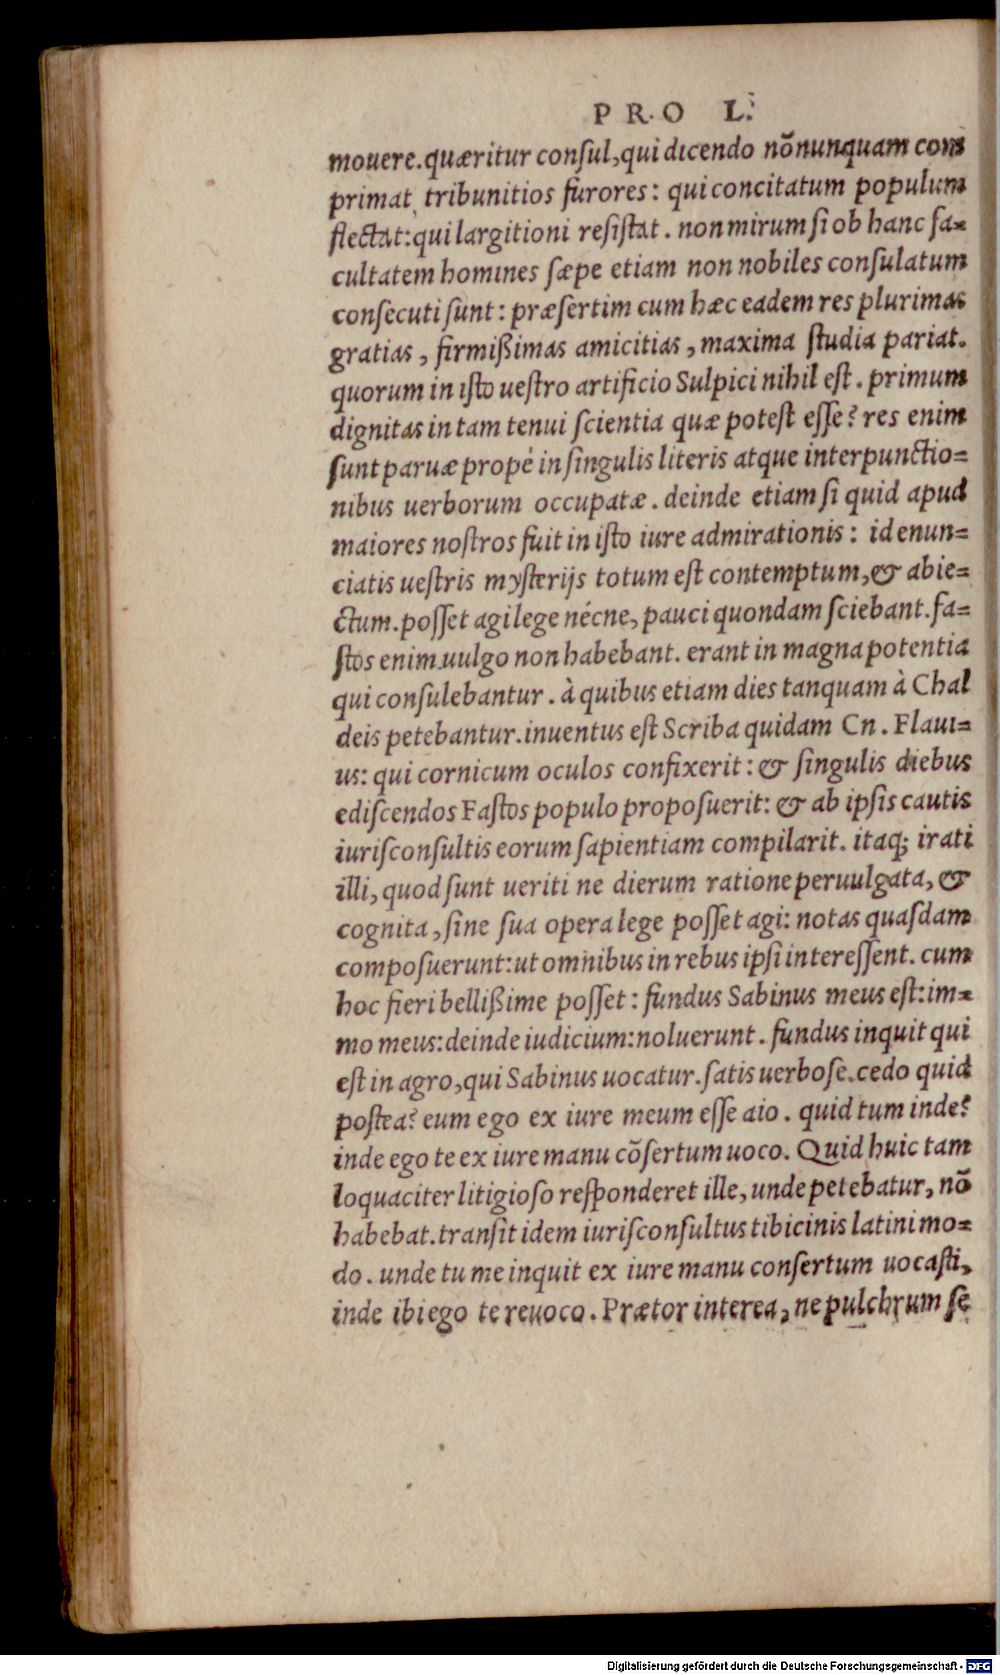 PRO L.
mouere. quæritur consul, qui dicendo nõnunquam com
primat tribunitios furores: qui concitatum populum
flectat: qui largitioni resistat. non mirum si ob hanc fa=
cultatem homines sæpe etiam non nobiles consulatum
consecuti sunt: præsertim cum hæc eadem res plurimas
gratias, firmißimas amicitias, maxima studia pariat.
quorum in isto uestro artificio Sulpici nihil est. primum
dignitas in tam tenui scientia quæ potest esse? res enim
sunt paruæ propè in singulis literis atque interpunctio=
nibus uerborum occupatæ. deinde etiam si quid apud
maiores nostros fuit in isto iure admirationis: id enun=
ciatis uestris mysterijs totum est contemptum, & abie=
ctum. posset agi lege nécne, pauci quondam sciebant. fa=
stos enim uulgo non habebant. erant in magna potentia
qui consulebantur. à quibus etiam dies tanquam à Chal
deis petebantur. inuentus est Scriba quidam Cn. Flaui=
us: qui cornicum oculos confixerit: & singulis diebus
ediscendos Fastos populo proposuerit: & ab ipsis cautis
iurisconsultis eorum sapientiam compilarit. itaq; irati
illi, quod sunt ueriti ne dierum ratione peruulgata, &
cognita, sine sua opera lege posset agi: notas quasdam
composuerunt: ut omnibus in rebus ipsi interessent. cum
hoc fieri bellißime posset: fundus Sabinus meus est: im=
mo meus: deinde iudicium: noluerunt. fundus inquit qui
est in agro, qui Sabinus uocatur. satis uerbose. cedo quid
postea? eum ego ex iure meum esse aio. quid tum inde?
inde ego te ex iure manu cõsertum uoco. Quid huic tam
loquaciter litigioso responderet ille, unde petebatur, nõ
habebat. transit idem iurisconsultus tibicinis latini mo=
do. unde tu me inquit ex iure manu consertum uocasti,
inde ibi ego te reuoco. Prætor interea, ne pulchrum se
Digitalisierung gefördert durch die Deutsche Forschungsgemeinschaft - DFG